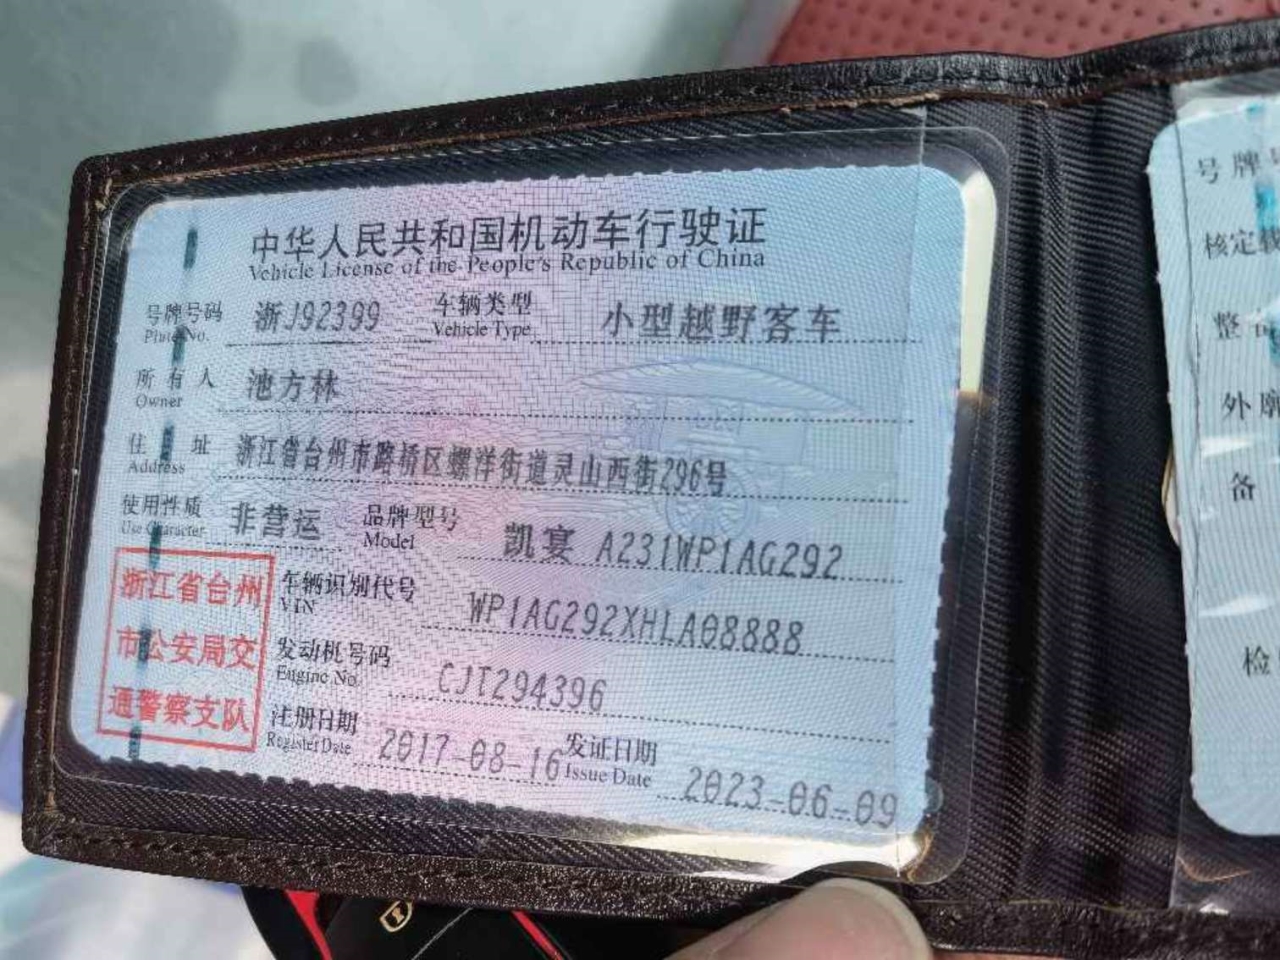 中华人民共和国机动车行驶证
Vehicle License of the People's Republic of China
号牌号码 浙J92399 车辆类型 小型越野客车
Plate No. Vehicle Type
所有人 池方林
Owner
住址 浙江省台州市路桥区螺洋街道灵山西街296号
Address
使用性质 非营运 品牌型号 凯宴 A231WP1AG292
Use Character Model
浙江省台州
市公安局交
通警察支队
车辆识别代号 WP1AG292XHLA08888
VIN
发动机号码 CJT294396
Engine No.
注册日期 2017-08-16 发证日期 2023-06-09
Register Date Issue Date
号牌
核定
整
外廓
备
检